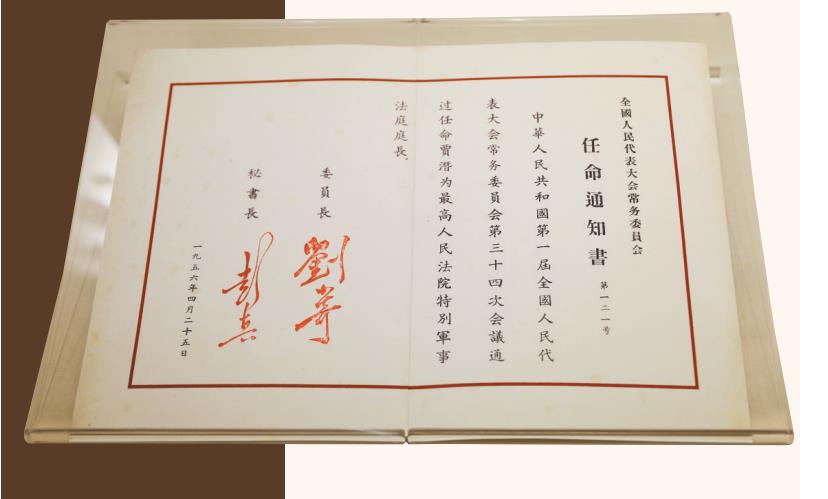 全國人民代表大会常务委員会
任命通知書
第一二一号
中華人民共和國第一届全國人民代
表大会常务委員会第三十四次会議通
过任命賈潜为最高人民法院特別軍事
法庭庭長。
委員長
劉少奇
秘書長
彭真
一九五六年四月二十五日